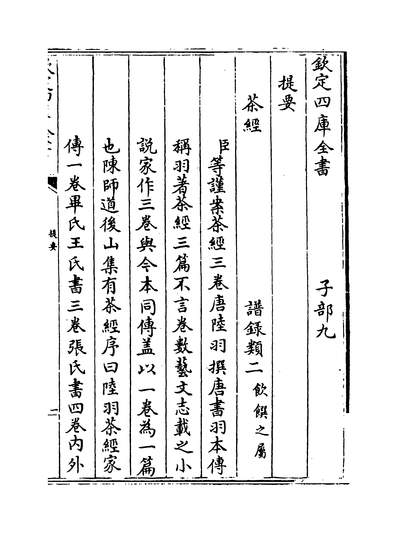 欽定四庫全書 子部九
提要 譜錄類二飲饌之屬
茶經
臣等謹案茶經三卷唐陸羽撰唐書羽本傳
稱羽著茶經三篇不言卷數藝文志載之小
說家作三卷與今本同傳盖以一卷為一篇
也陳師道後山集有茶經序曰陸羽茶經家
傳一卷畢氏王氏書三卷張氏書四卷內外
提要
二